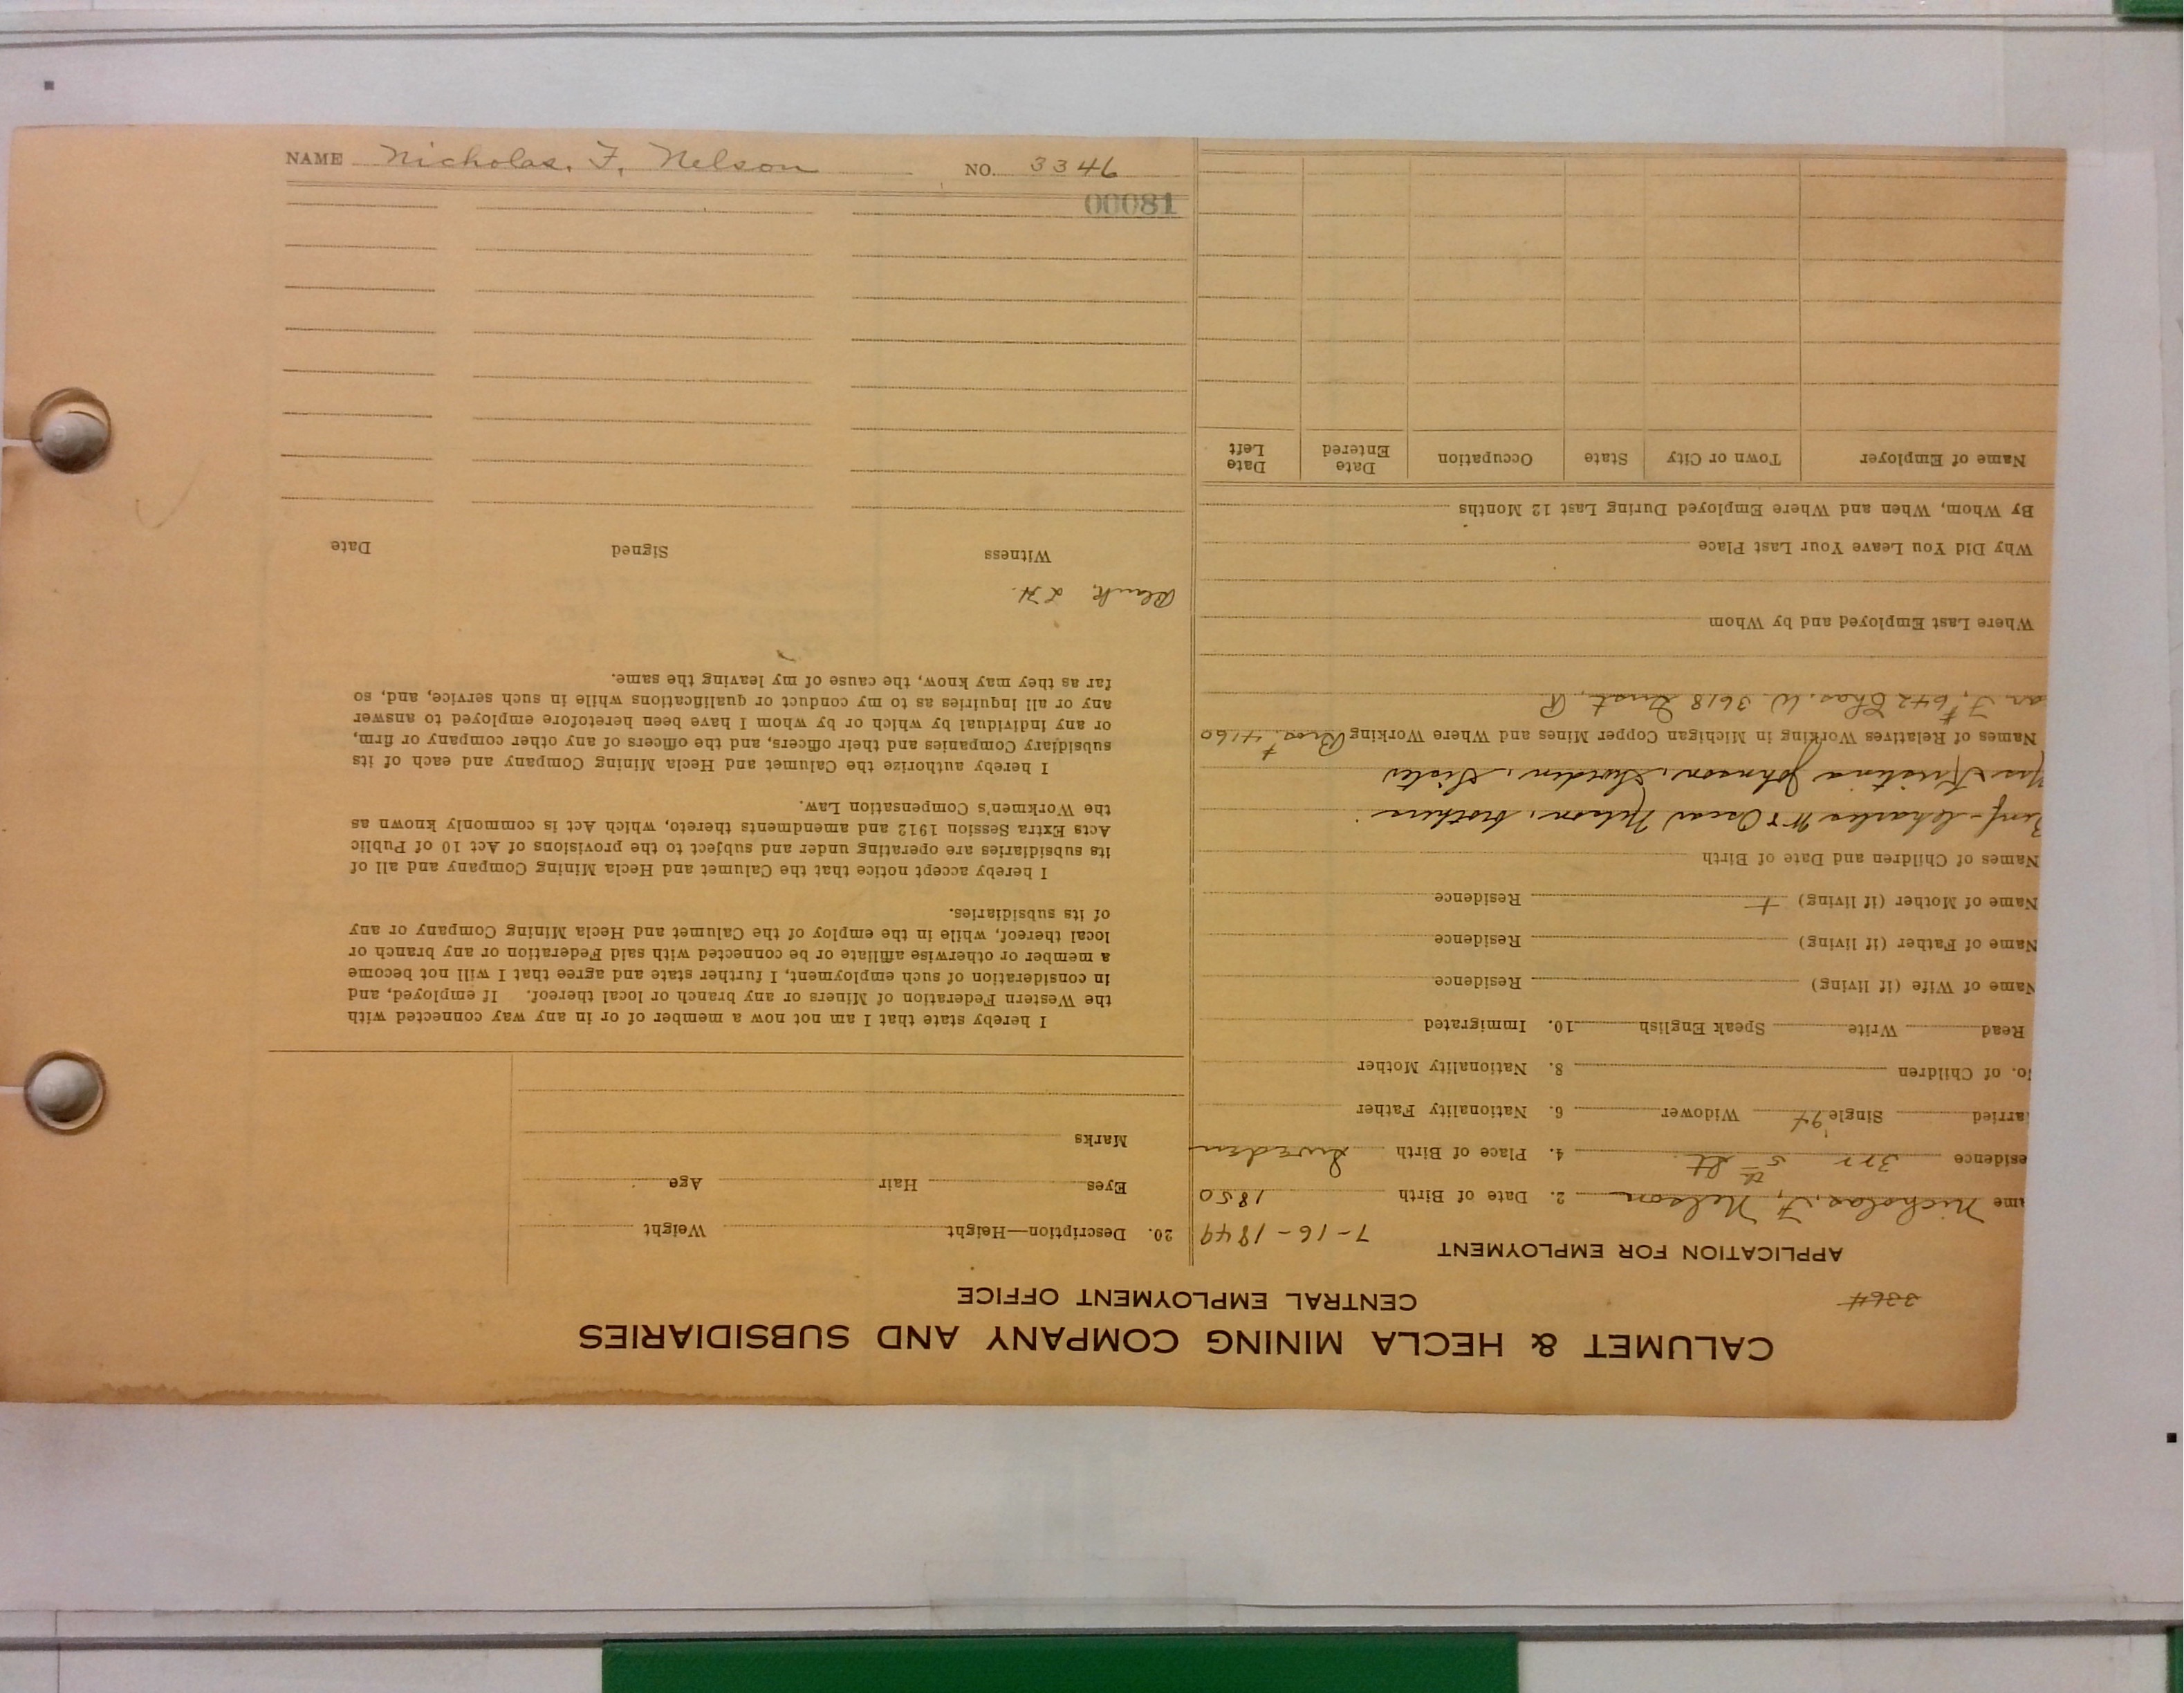 NAME Nicholas. F. Nelson NO. 3346
00081
CALUMET & HECLA MINING COMPANY AND SUBSIDIARIES
CENTRAL EMPLOYMENT OFFICE
APPLICATION FOR EMPLOYMENT
7-16-1849
ame Nicholas. F. Nelson 2. Date of Birth 1850
esidence 322 5th St. 4. Place of Birth Sweden
arried Single Widower 6. Nationality Father
o. of Children 8. Nationality Mother
Read Write Speak English 10. Immigrated
Name of Wife (if living) Residence
Name of Father (if living) Residence
Name of Mother (if living) Residence
Names of Children and Date of Birth
Benf- Charles W & Oscar Nelson, brothers
Mrs Kristina Johnson, Sweden, Sister
Names of Relatives Working in Michigan Copper Mines and Where Working Bros. 4160
F 642 Chas. W. 3618
Where Last Employed and by Whom
Why Did You Leave Your Last Place
By Whom, When and Where Employed During Last 12 Months
Name of Employer Town or City State Occupation Date Entered Date Left
20. Description—Height Weight
Eyes Hair Age
Marks
I hereby state that I am not now a member of or in any way connected with
the Western Federation of Miners or any branch or local thereof. If employed, and
in consideration of such employment, I further state and agree that I will not become
a member or otherwise affiliate or be connected with said Federation or any branch or
local thereof, while in the employ of the Calumet and Hecla Mining Company or any
of its subsidiaries.
I hereby accept notice that the Calumet and Hecla Mining Company and all of
its subsidiaries are operating under and subject to the provisions of Act 10 of Public
Acts Extra Session 1912 and amendments thereto, which Act is commonly known as
the Workmen's Compensation Law.
I hereby authorize the Calumet and Hecla Mining Company and each of its
subsidiary Companies and their officers, and the officers of any other company or firm,
or any individual by which or by whom I have been heretofore employed to answer
any or all inquiries as to my conduct or qualifications while in such service, and, so
far as they may know, the cause of my leaving the same.
Witness Signed Date